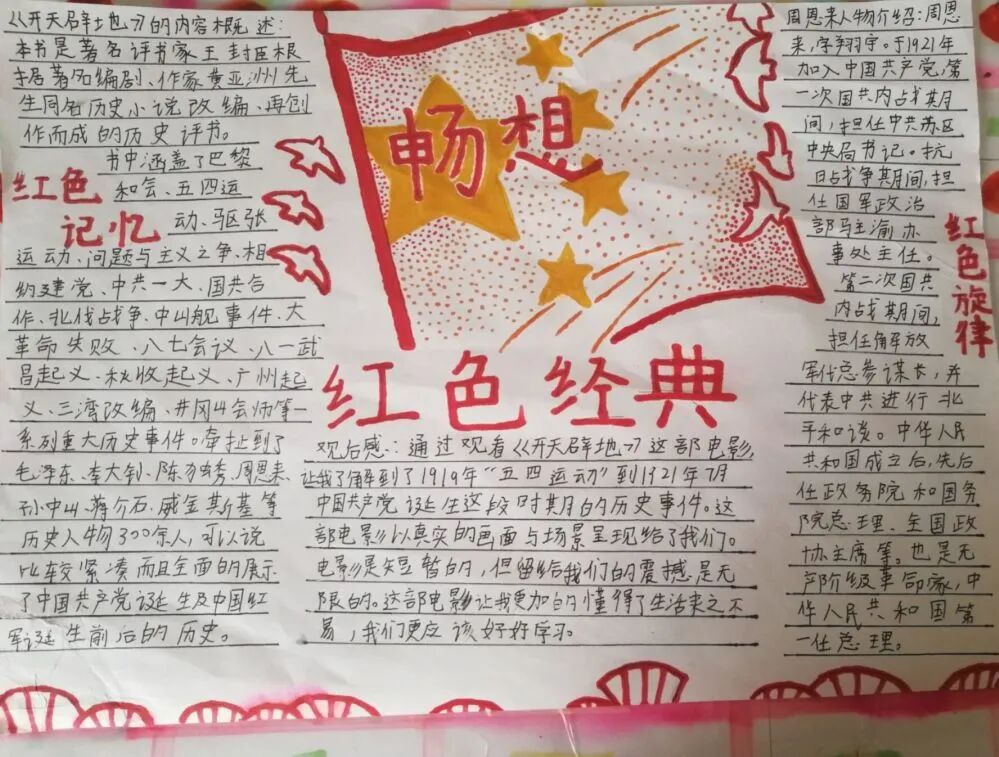 《开天辟地》的内容概述:
本书是著名评书家王封臣根
据著名编剧、作家黄亚洲先
生同名历史小说改编、再创
作而成的历史评书。
书中涵盖了巴黎
和会、五四运
动、驱张
运动、问题与主义之争、相
约建党、中共一大、国共合
作、北伐战争、中山舰事件、大
革命失败、八七会议、八一武
昌起义、秋收起义、广州起
义、三湾改编、井冈山会师等一
系列重大历史事件。牵扯到了
毛泽东、李大钊、陈独秀、周恩来、
孙中山、蒋介石、威金斯基等
历史人物300余人,可以说
比较紧凑而且全面的展示
了中国共产党诞生及中国红
军诞生前后的历史。
红色
记忆
畅想
红色经典
观后感:通过观看《开天辟地》这部电影,
让我了解到了1919年“五四运动”到1921年7月
中国共产党诞生这段时期的历史事件。这
部电影以真实的画面与场景呈现给了我们。
电影是短暂的,但留给我们的震撼是无
限的。这部电影让我更加的懂得了生活来之不
易,我们更应该好好学习。
周恩来人物介绍:周恩
来,字翔宇。于1921年
加入中国共产党,第
一次国共内战期
间,担任中共苏区
中央局书记。抗
日战争期间,担
任国军政治
部驻渝办
事处主任。
第二次国共
内战期间,
担任解放
军代总参谋长,并
代表中共进行北
平和谈。中华人民
共和国成立后,先后
任政务院和国务
院总理、全国政
协主席等。也是无
产阶级革命家,中
华人民共和国第
一任总理。
红色旋律